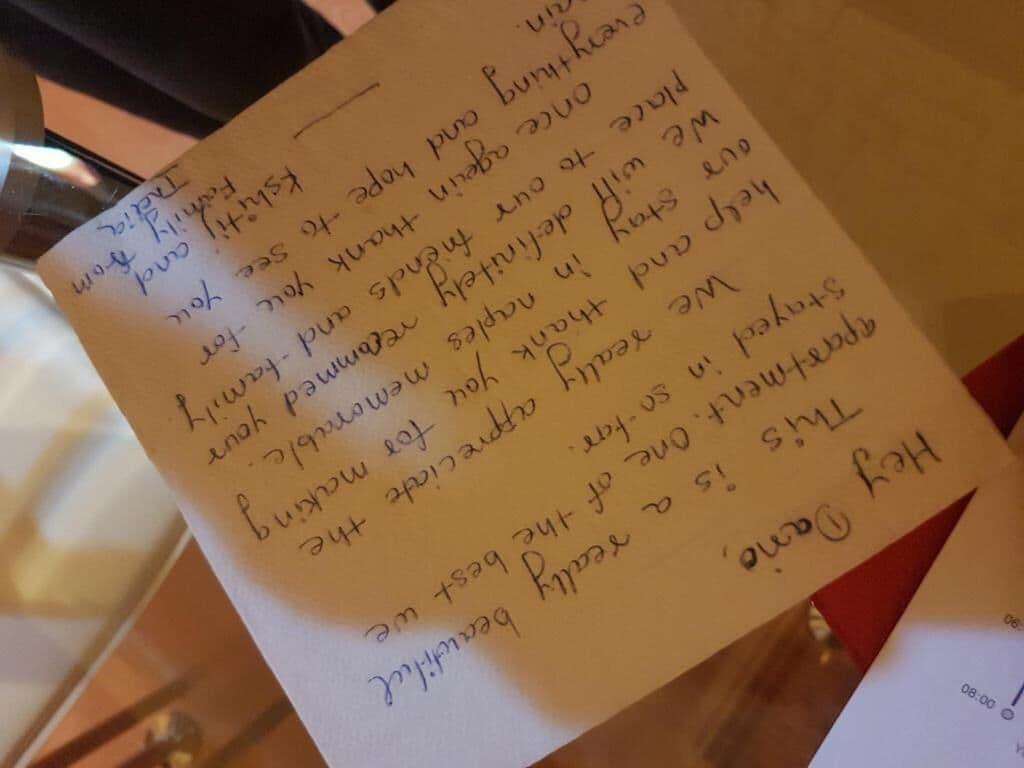 Hey Dario,
This is a really beautiful
apartment. One of the best we
stayed in so-far.
We really appreciate the
help and thank you for making
our stay in naples memorable.
We will definitely recommed your
place to our friends and family.
Once again thank you for
everything and hope to see you
ain.
Kshitij and
Family from
India
08:00